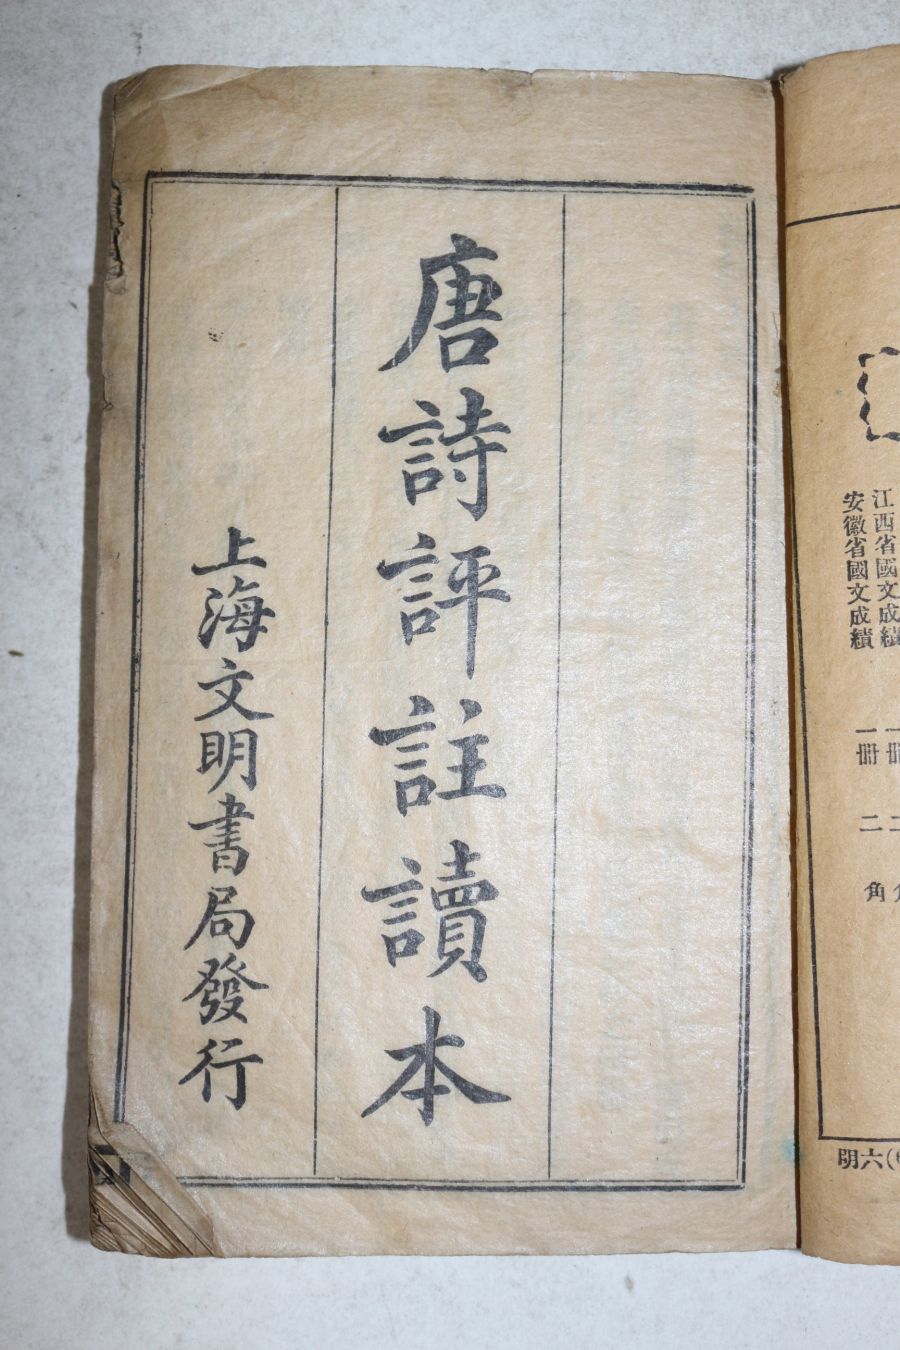 江西省國文成績 一冊 二
安徽省國文成績 一冊 二角
明六
唐詩評註讀本
上海文明書局發行